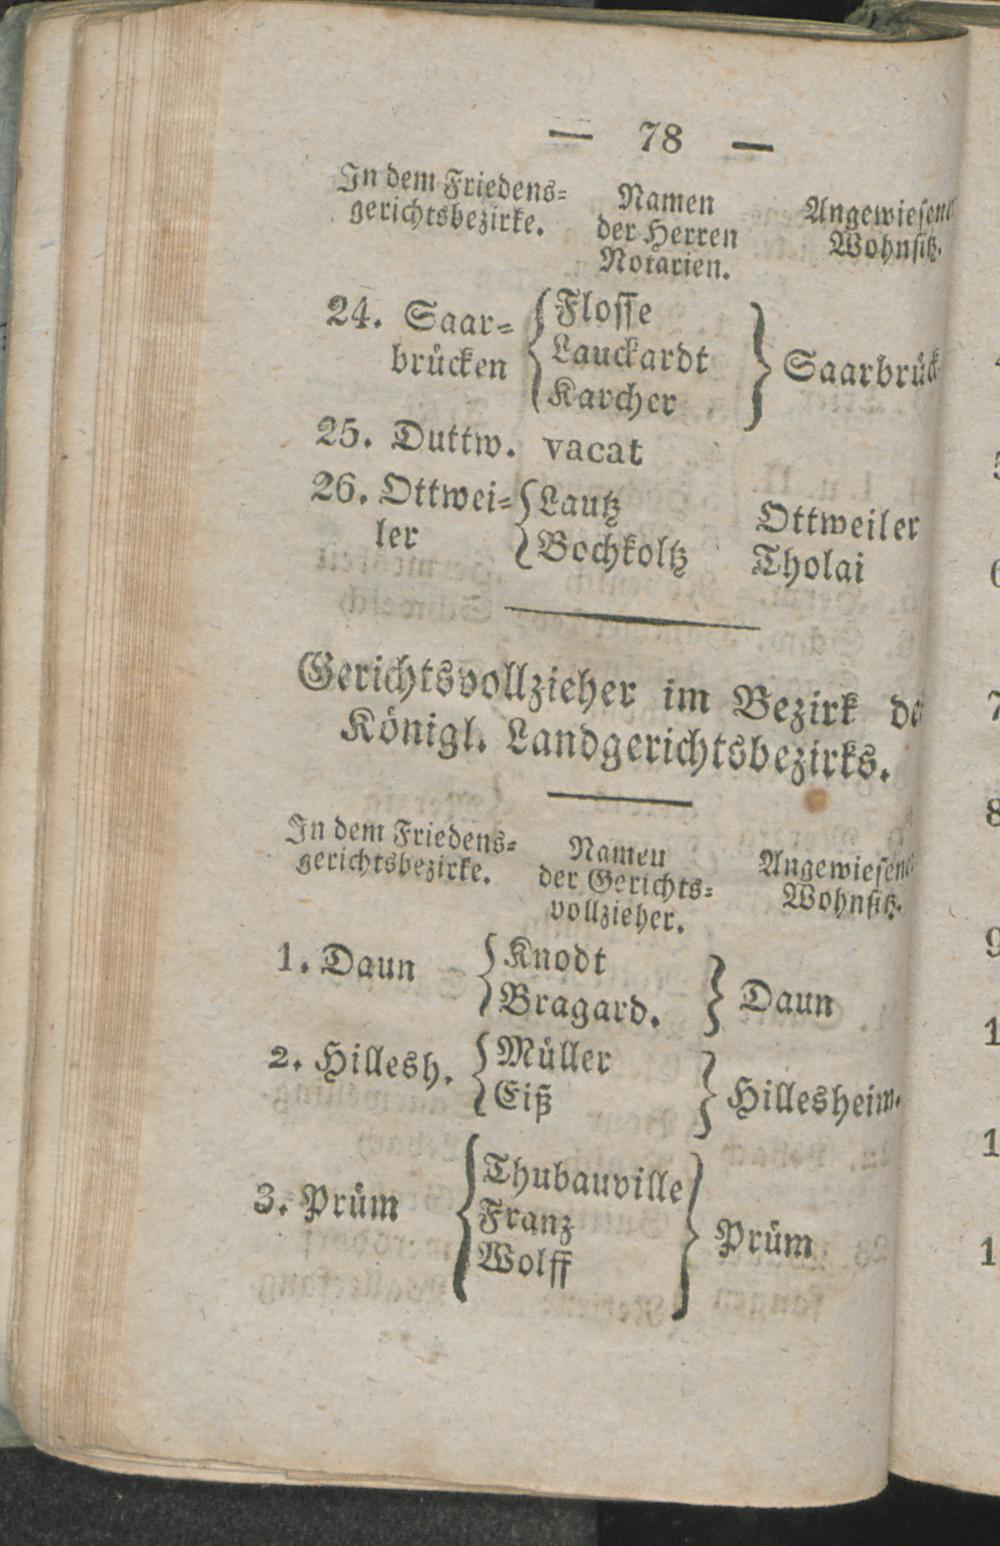 — 78 —
In dem Friedens=
gerichtsbezirke.
Namen
der Herren
Notarien.
Angewiesene
Wohnsitz.
24. Saar=
brücken
Flosse
Lauckardt
Karcher
Saarbrück
25. Duttw. vacat
26. Ottwei=
ler
Lautz
Bochkoltz
Ottweiler
Tholai
Gerichtsvollzieher im Bezirk de
Königl. Landgerichtsbezirks.
In dem Friedens=
gerichtsbezirke.
Namen
der Gerichts=
vollzieher.
Angewiesene
Wohnsitz.
1. Daun
Knodt
Bragard.
Daun
2. Hillesh.
Müller
Eiß
Hillesheim.
3. Prüm
Thubauville
Franz
Wolff
Prüm